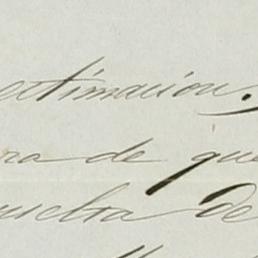 estimacion.
ra de que
uelta de